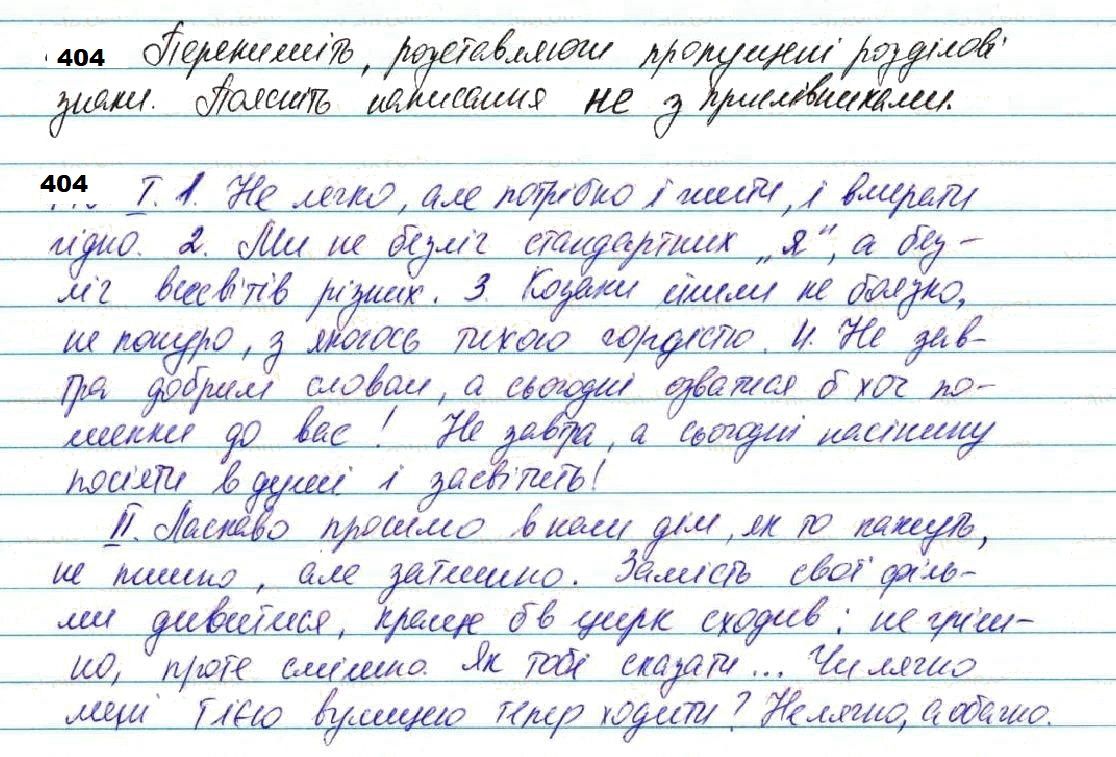 404 Перепишіть, розставляючи пропущені розділові
знаки. Поясніть написання не з прислівниками.
404 I. 1. Не легко, але потрібно і жити, і вмирати
гідно. 2. Ми не безліч стандартних „я", а без-
ліч всесвітів різних. 3. Козаки йшли не боязко,
не похмуро, з якоюсь тихою гордістю. 4. Не зав-
тра добрим словом, а сьогодні озватися б хоч по-
шепки до вас! Не завтра, а сьогодні насінину
посіяти в душі і засвітить!
II. Ласкаво просимо в наш дім, як то кажуть,
не пишно, але затишно. Замість свої філь-
ми дивитися, краще б в цирк сходив: не гріш-
но, проте смішно. Як тобі сказати... Чи лячно
мені тією вулицею тепер ходити? Не лячно, а обачно.